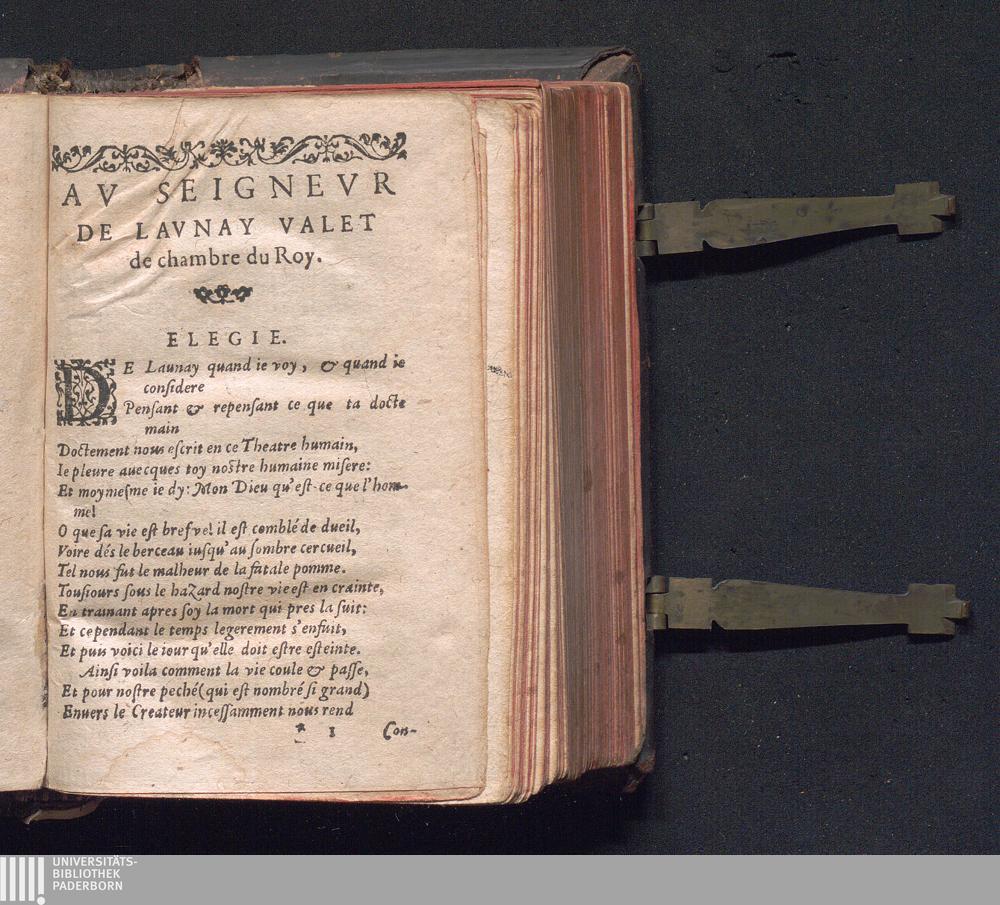 AV SEIGNEVR
DE LAVNAY VALET
de chambre du Roy.
ELEGIE.
DE Launay quand ie voy, & quand ie
conſidere
Penſant & repenſant ce que ta docte
main
Doctement nous eſcrit en ce Theatre humain,
Ie pleure auecques toy noſtre humaine miſere:
Et moymeſme ie dy: Mon Dieu qu'eſt-ce que l'hom-
me!
O que ſa vie eſt brefve! il eſt comblé de dueil,
Voire dés le berceau iuſqu'au ſombre cercueil,
Tel nous fut le malheur de la fatale pomme.
Touſiours ſous le hazard noſtre vie eſt en crainte,
En trainant apres ſoy la mort qui pres la ſuit:
Et cependant le temps legerement s'enfuit,
Et puis voici le iour qu'elle doit eſtre eſteinte.
Ainſi voila comment la vie coule & paſſe,
Et pour noſtre peché (qui eſt nombré ſi grand)
Enuers le Createur inceſſamment nous rend
* 1 Con-
UNIVERSITÄTS-
BIBLIOTHEK
PADERBORN